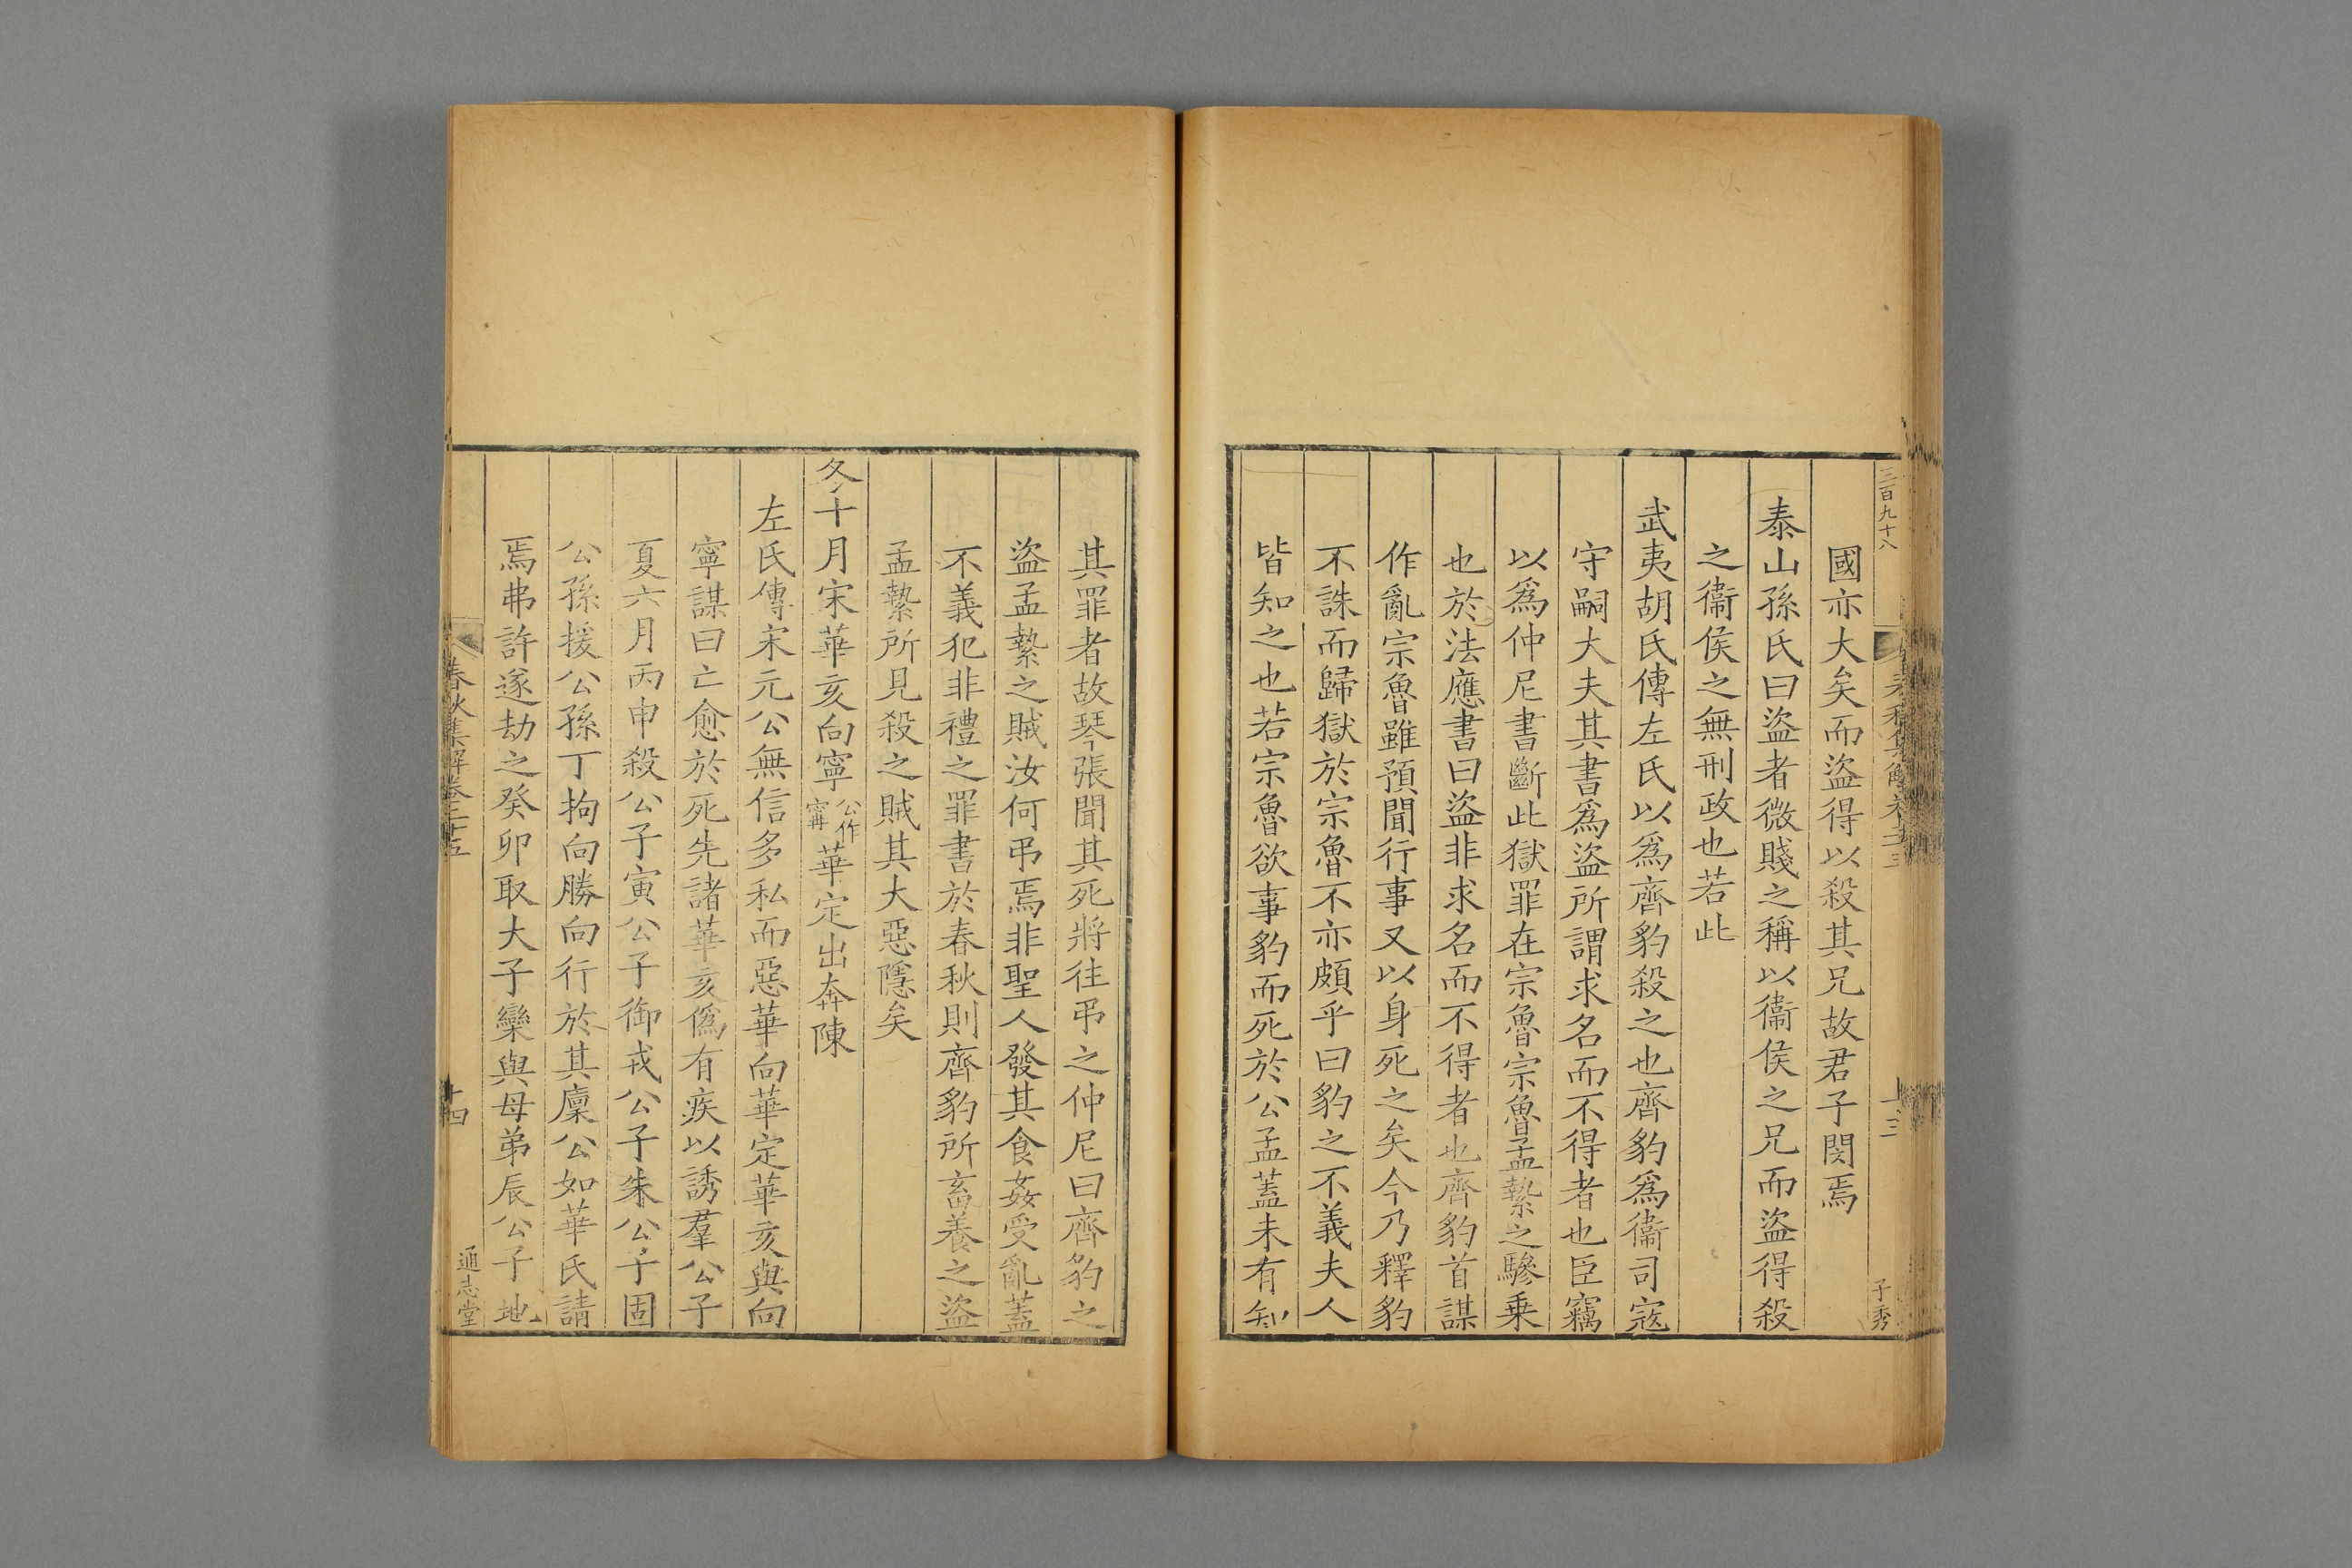 三百九十八
子秀
國亦大矣而盜得以殺其兄故君子閔焉
泰山孫氏曰盜者微賤之稱以衞侯之兄而盜得殺
之衞侯之無刑政也若此
武夷胡氏傳左氏以爲齊豹殺之也齊豹爲衞司寇
守嗣大夫其書爲盜所謂求名而不得者也臣竊
以爲仲尼書斷此獄罪在宗魯宗魯孟縶之驂乗
也於法應書曰盜非求名而不得者也齊豹首謀
作亂宗魯雖預聞行事又以身死之矣今乃釋豹
不誅而歸獄於宗魯不亦頗乎曰豹之不義夫人
皆知之也若宗魯欲事豹而死於公孟蓋未有知
其罪者故琴張聞其死將往弔之仲尼曰齊豹之
盜孟縶之賊汝何弔焉非聖人發其食姦受亂蓋
不義犯非禮之罪書於春秋則齊豹所畜養之盜
孟縶所見殺之賊其大惡隱矣
冬十月宋華亥向寧公作寗華定出奔陳
左氏傳宋元公無信多私而惡華向華定華亥與向
寧謀曰亡愈於死先諸華亥僞有疾以誘羣公子
夏六月丙申殺公子寅公子御戎公子朱公子固
公孫援公孫丁拘向勝向行於其廩公如華氏請
焉弗許遂劫之癸卯取大子欒與母弟辰公子地
春秋集解卷二十五
十四
通志堂